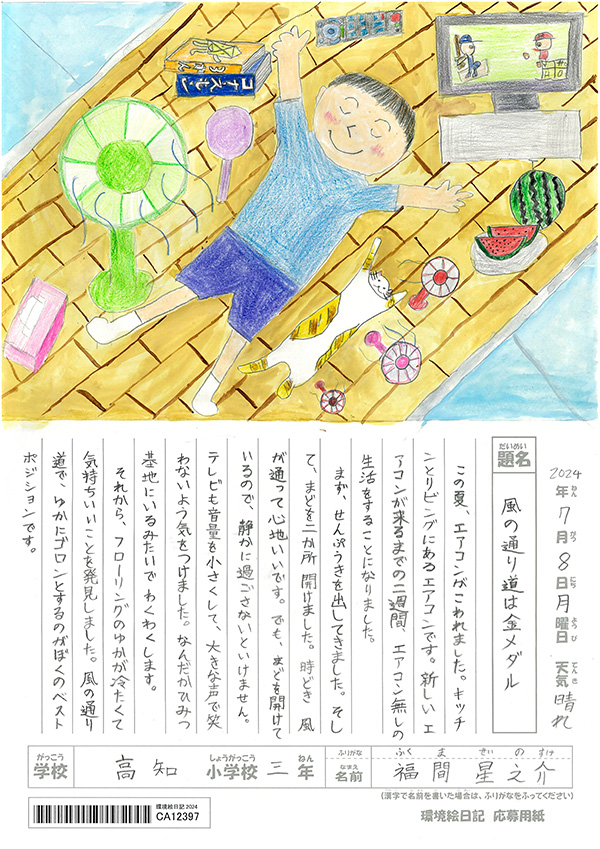 コナズ スモン
2024年7月8日月曜日 天気 晴れ
ねん がつ にち ようび てんき
だいめい
題名
風の通り道は金メダル
この夏、エアコンがこわれました。キッチ
ンとリビングにあるエアコンです。新しいエ
アコンが来るまでの二週間、エアコン無しの
生活をすることになりました。
まず、せんぷうきを出してきました。そし
て、まどを二か所開けました。時どき風
が通って心地いいです。でも、まどを開けて
いるので、静かに過ごさないといけません。
テレビも音量を小さくして、大きな声で笑
わないよう気をつけました。なんだかひみつ
基地にいるみたいでわくわくします。
それから、フローリングのゆかが冷たくて
気持ちいいことを発見しました。風の通り
道で、ゆかにゴロンとするのがぼくのベスト
ポジションです。
がっこう しょうがっこう ねん
学校 高知 小学校 三年
ふりがな ふくま せいのすけ
なまえ
名前 福間星之介
(漢字で名前を書いた場合は、ふりがなをふってください)
環境絵日記2024
CA12397
環境絵日記 応募用紙